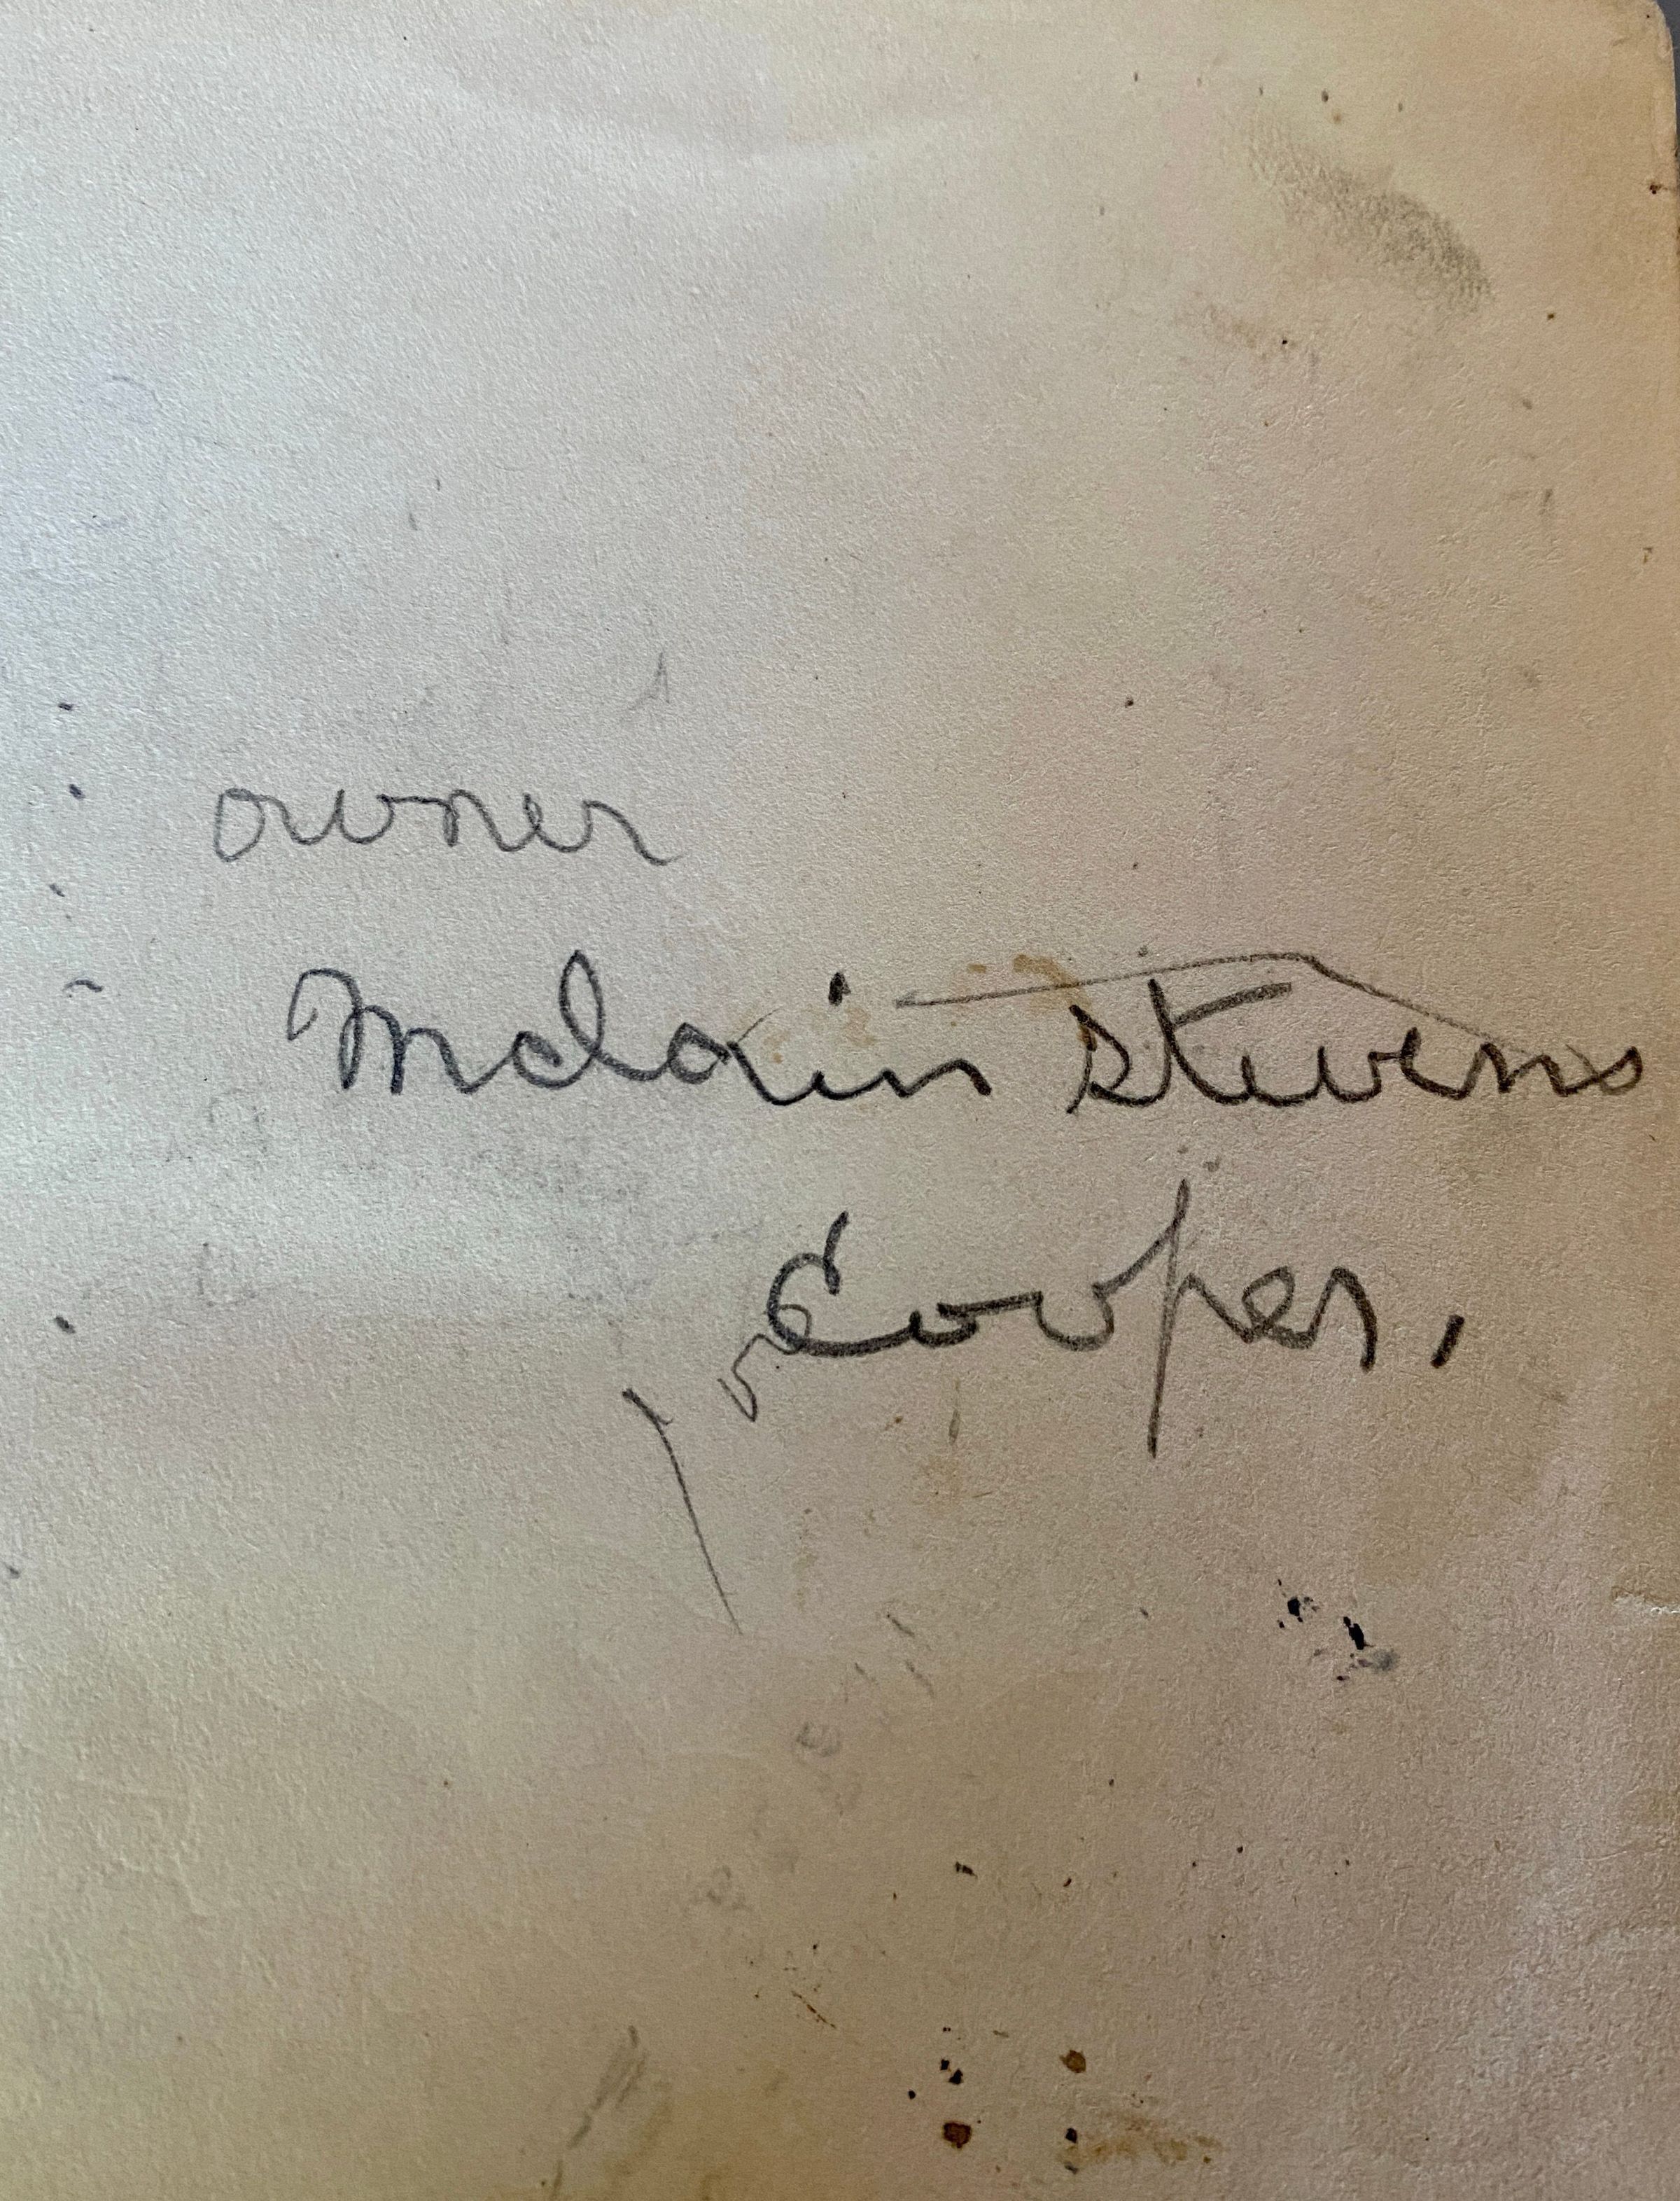 owner
Mclain Stevens
Cooper.